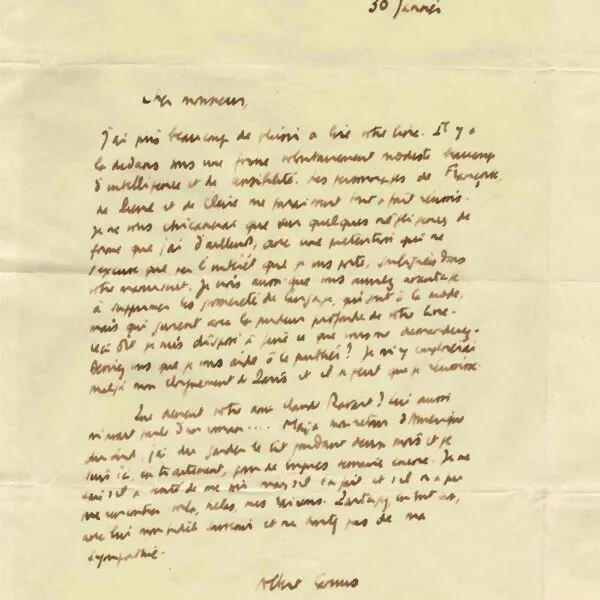 30 Janvier
Cher monsieur,
J'ai pris beaucoup de plaisir à lire votre livre. Il y a
là dedans sous une forme volontairement modeste beaucoup
d'intelligence et de sensibilité. Les personnages de Françoise,
de Pierre et de Claire me paraissent tout à fait réussis.
Je ne vous chicanerai que sur quelques négligences de
forme que j'ai d'ailleurs, avec une prétention qui ne
s'excuse que par l'intérêt que je vous porte, soulignées dans
votre manuscrit. Je crois aussi que vous auriez avantage
à supprimer les grossièretés de langage, qui sont à la mode,
mais qui jurent avec la pudeur profonde de votre livre.
Ceci dit je suis disposé à faire ce que vous me demanderez.
Désirez vous que je vous aide à le publier? Je m'y emploierai
malgré mon éloignement de Paris et il se peut que je réussisse.
Que devient votre ami Claude ? Lui aussi
m'avait parlé d'un roman.... Mais à mon retour d'Amérique
du Sud, j'ai dû garder le lit pendant deux mois et je
suis ici, en traitement, pour de longues semaines encore. Je ne
sais s'il a tenté de me voir mais s'il l'a fait et s'il n'a pu
me rencontrer voilà, hélas, mes raisons. Partagez, en tout cas,
avec lui mon fidèle souvenir et ne doutez pas de ma
sympathie.
Albert Camus